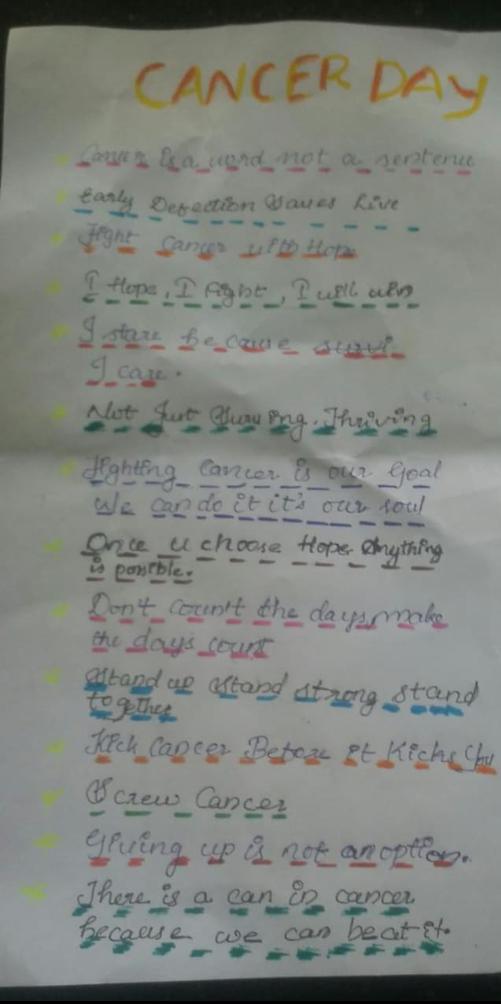 CANCER DAY
Cancer is a word not a sentence
Early Detection Saves Live
Fight Cancer with Hope
I Hope, I Fight, I will win
I stare because
I care.
Not Just Surviving. Thriving
Fighting Cancer is our Goal
We can do it it's our soul
Once u choose Hope Anything
is possible.
Don't count the days, make
the days count
Stand up Stand strong stand
together
Kick Cancer Before it Kicks
Screw Cancer
Giving up is not an option.
There is a can in cancer
because we can beat it.